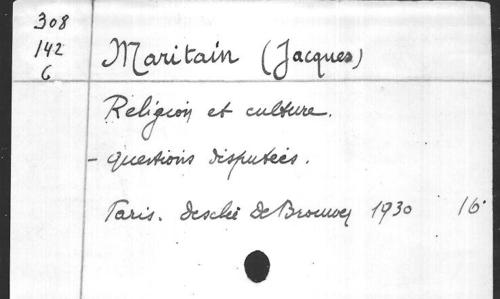 308
142
6
Maritain (Jacques)
Religion et culture.
- questions disputées.
Paris. Desclée De Brouwer 1930 16°